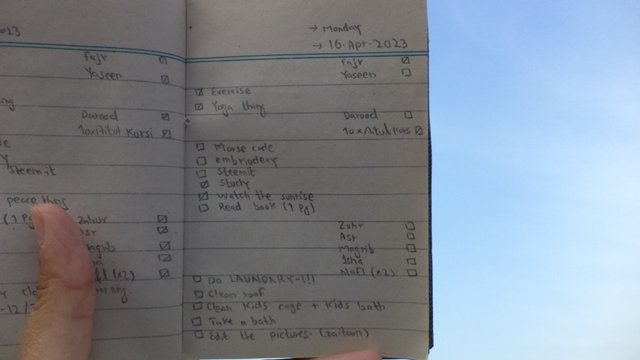 2023
Fajr
Yaseen
Darood
10xAitul Kursi
Steemit
peace thing
(1 Pg
Zuhur
Asr
→ Monday
→ 16-Apr-2023
Fajr
Yaseen
Exercise
Yoga thing
Darood
10xAitul Kas
Morse code
embriodery
Steemit
Study
Watch the sunrise
Read book (1 Pg)
Zuhr
Asr
Magrib
Isha
Nafl (x2)
Do LAUNDARY-!!!
Clean roof
Clean Kids cage + Kids bath
Take a bath
Edit the pictures- (zaitoon)